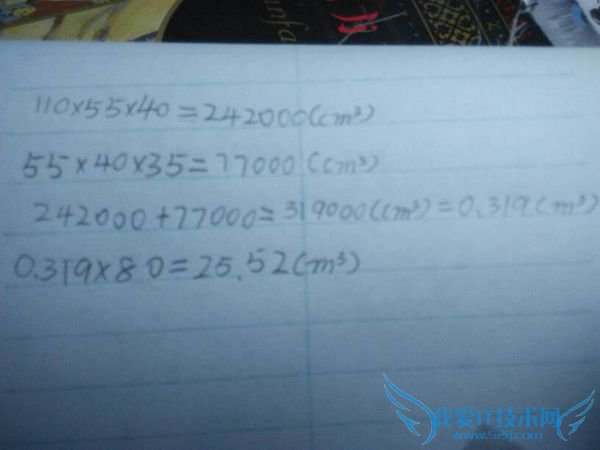 110×55×40=242000(cm³)
55×40×35=77000(cm³)
242000+77000=319000(cm³)=0.319(m³)
0.319×80=25.52(m³)
我爱IT技术网